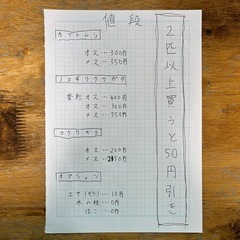 値段
カブトムシ
オス…300円
メス…350円
ノコギリクワガタ
オス…400円
オス…300円
メス…350円
コクワガタ
オス…200円
メス…
オプション
エサ(ゼリー)…10円
木の枝…0円
はこ…0円
2匹以上買うと50円引き